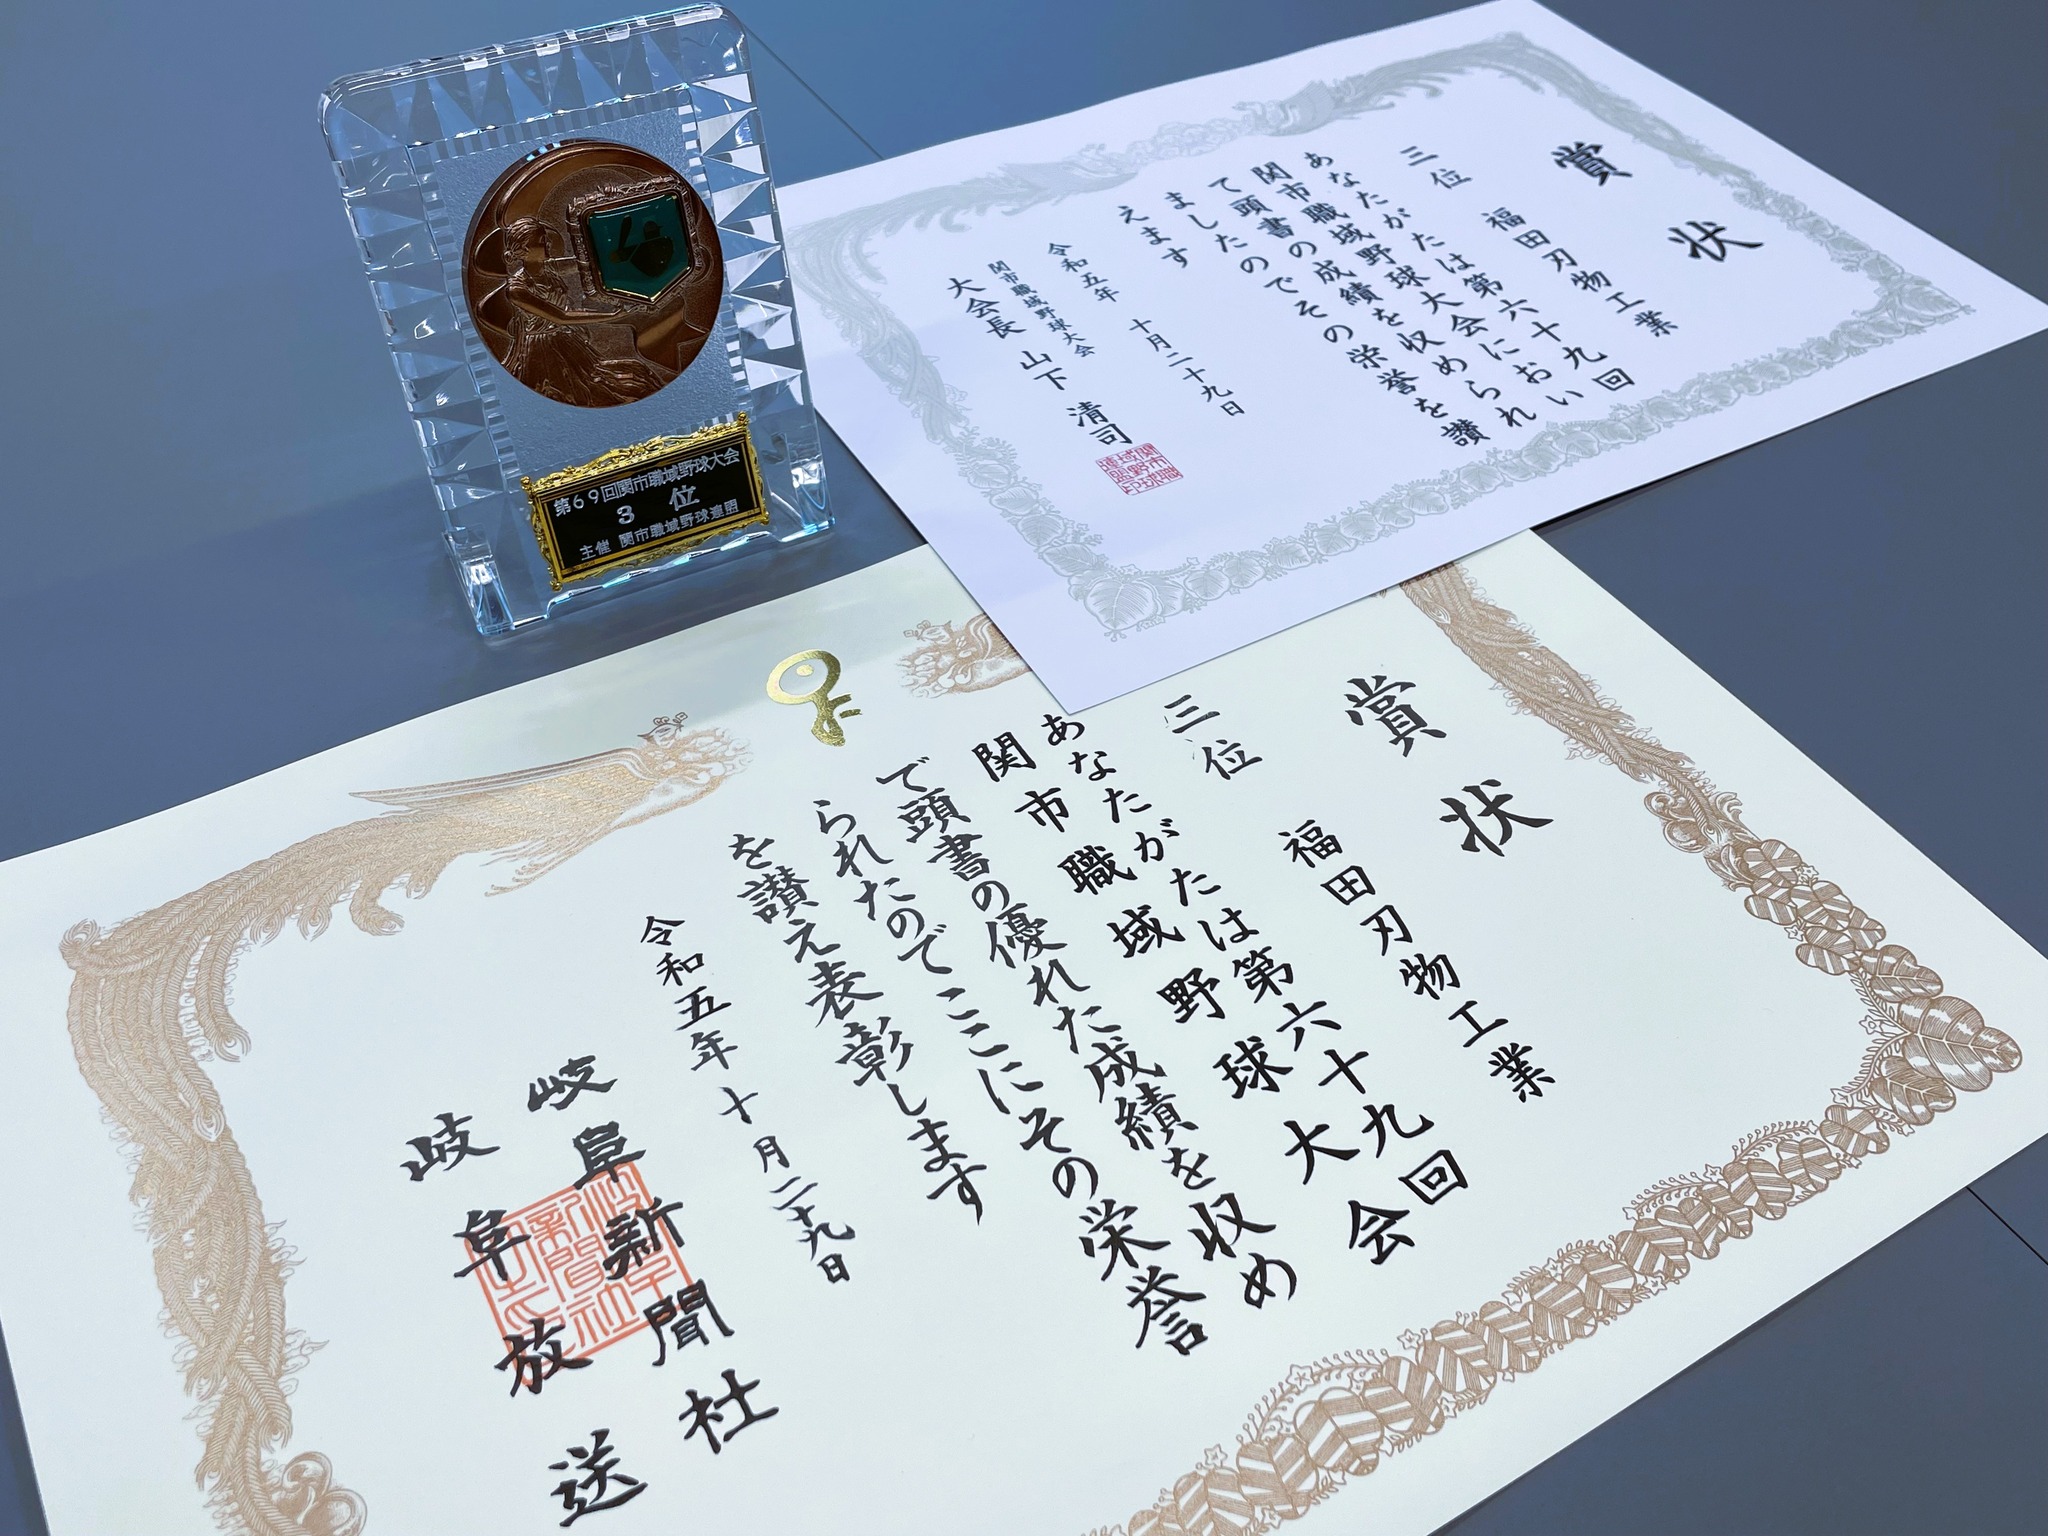 第69回関市職域野球大会
3 位
主催 関市職域野球連盟
賞状
三位 福田刃物工業
あなたがたは第六十九回
関市職域野球大会におい
て頭書の成績を収められ
ましたのでその栄誉を讃
えます
令和五年 十月二十九日
関市職域野球大会
大会長 山下 清司
関市職域野球連盟印
賞状
三位 福田刃物工業
あなたがたは第六十九回
関市職域野球大会
で頭書の優れた成績を収め
られたのでここにその栄誉
を讃え表彰します
令和五年十月二十九日
岐阜新聞社
岐阜放送